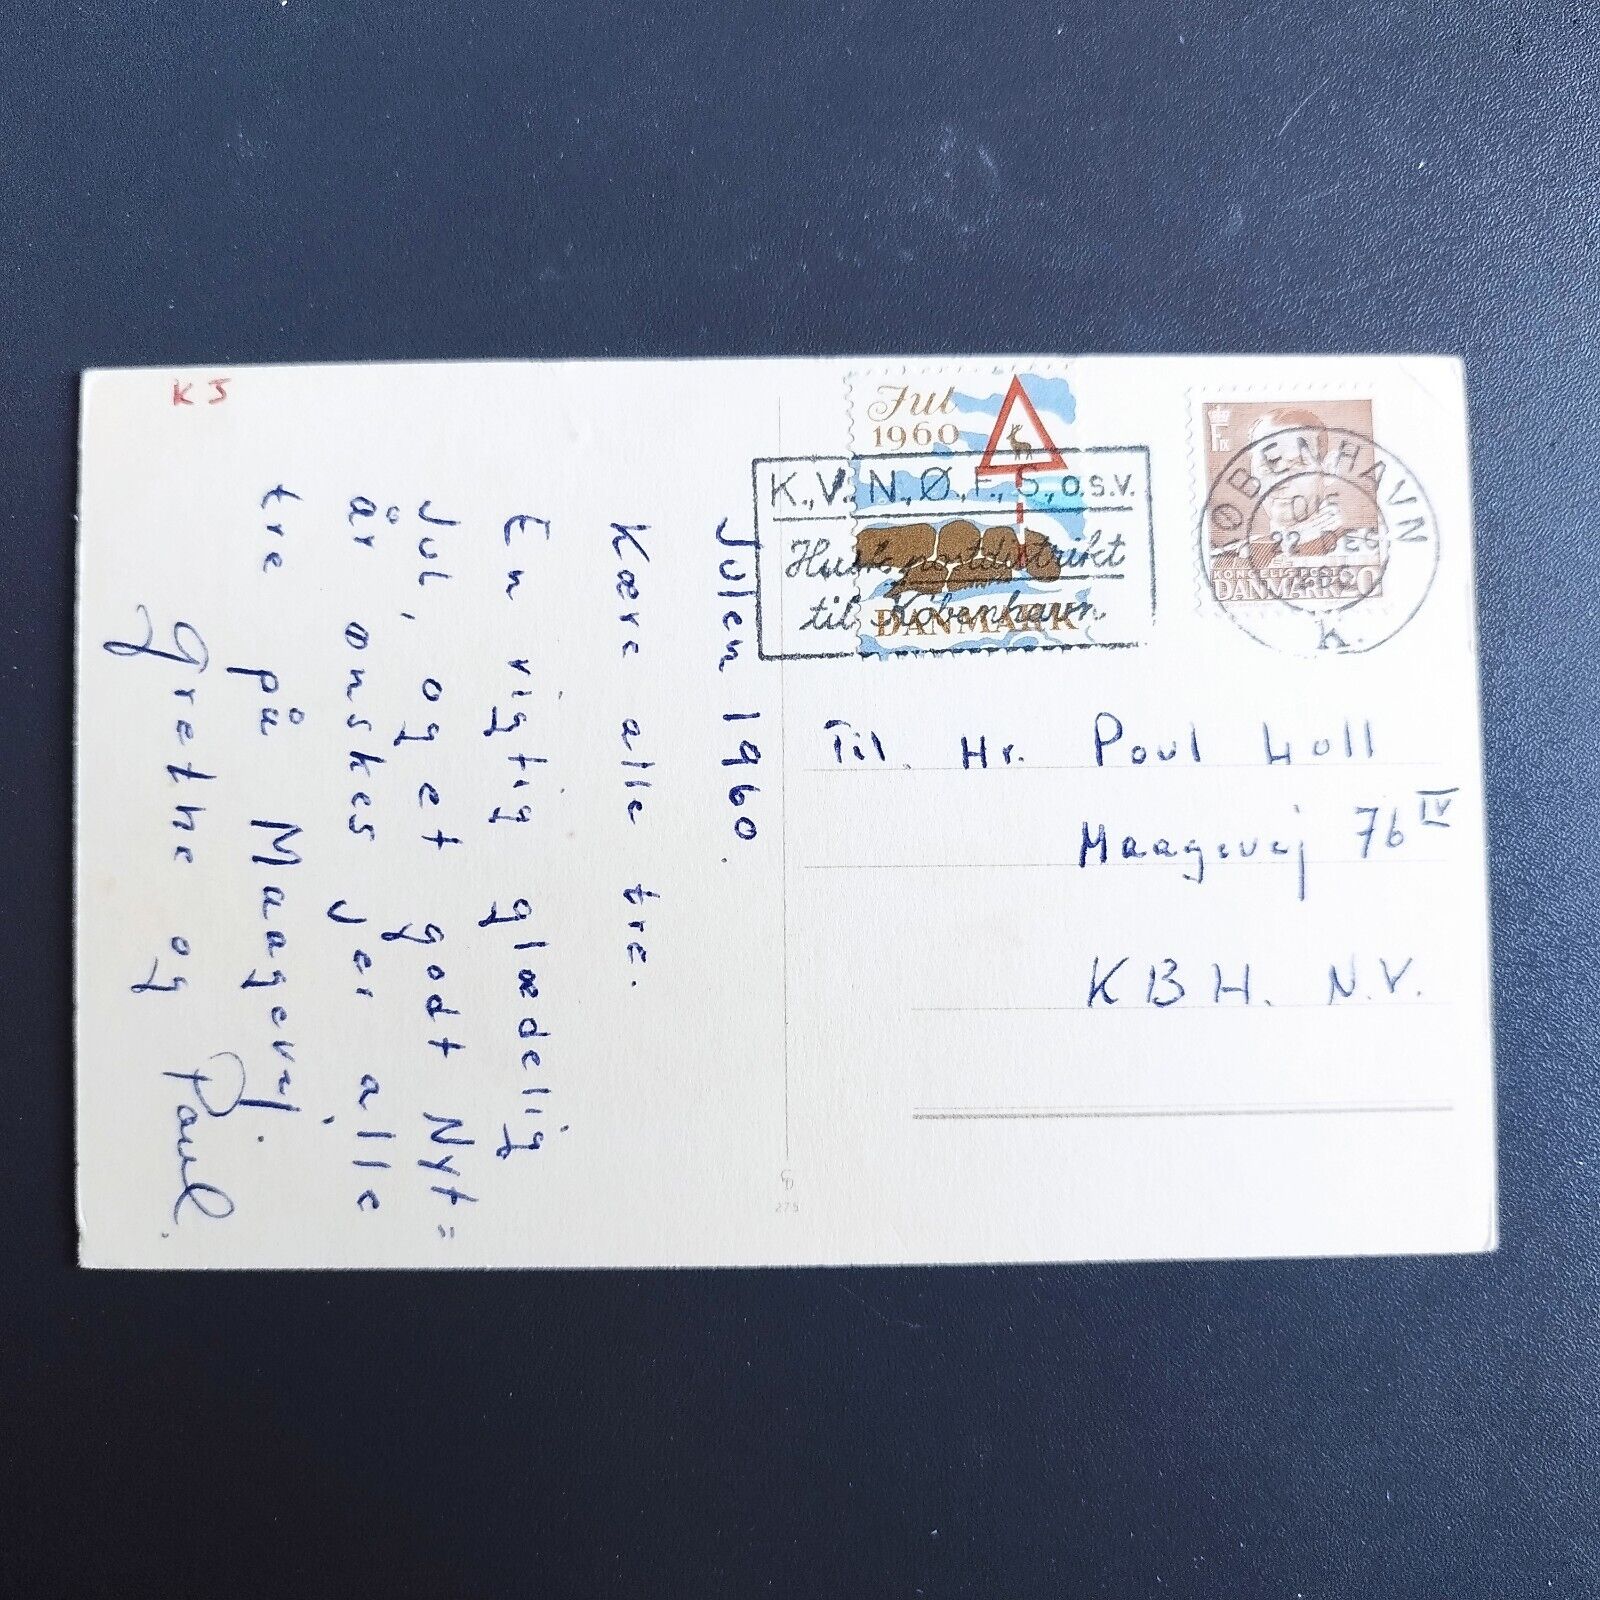 K J
Julen 1960.
Kære alle tre.
En rigtig glædelig
Jul, og et godt Nyt=
år ønskes jer alle
tre på Maagevej.
Grethe og Poul.
Jul
1960
DANMARK
K.,V., N.,Ø.,F.,S., o.s.v.
Husk postdistrikt
til København
KØBENHAVN
22 DEC
K.
DANMARK 20
Til. Hr. Poul Loll
Maagevej 76 IV
KBH. N.V.
275